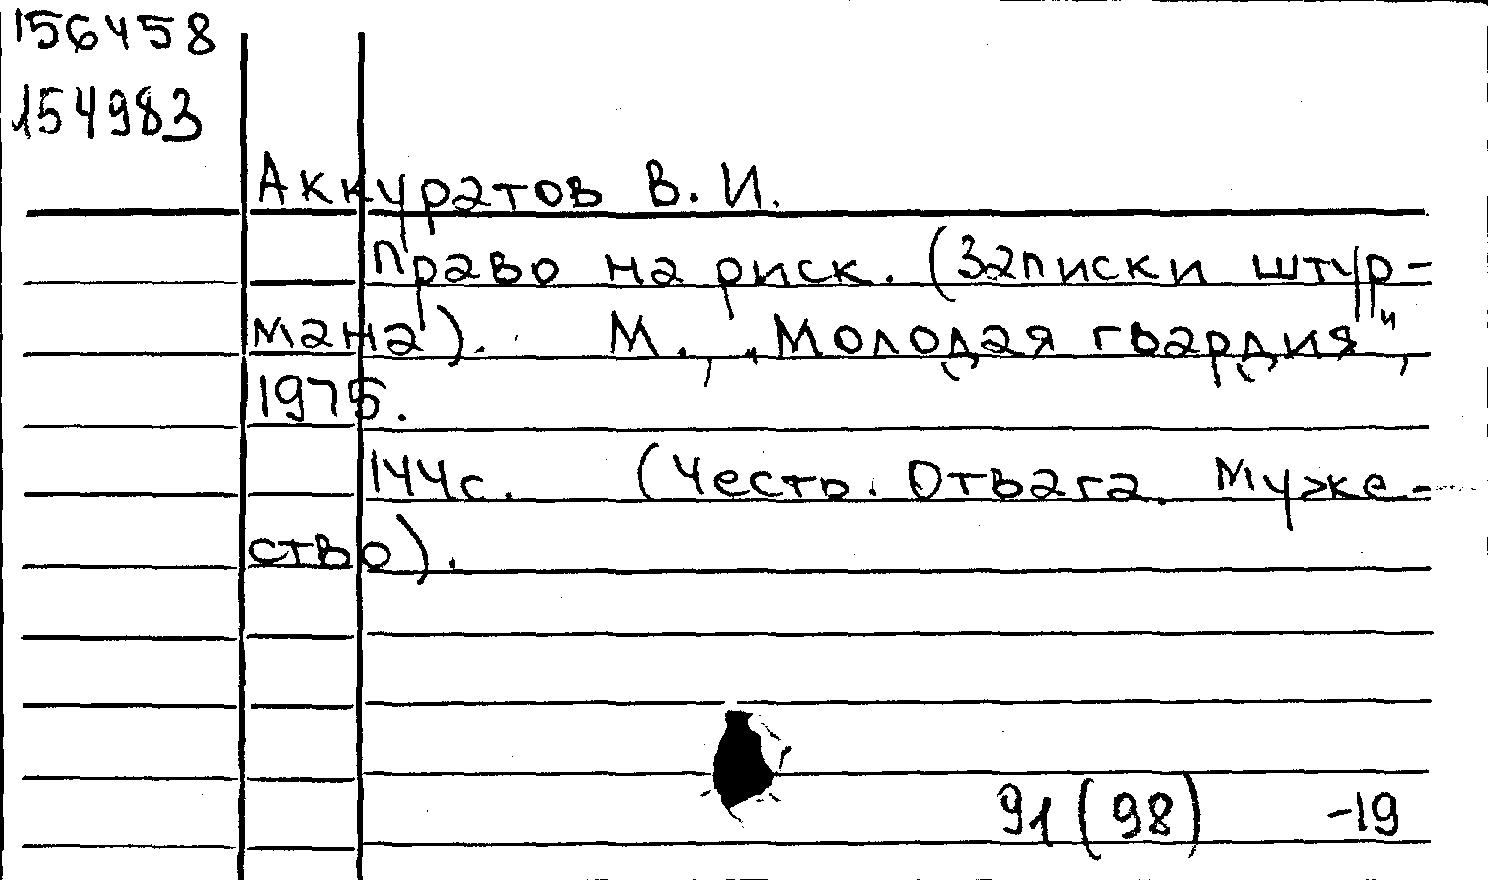 156458
154983
Аккуратов В. И.
Право на риск. (Записки штур-
мана). М., „Молодая гвардия",
1975.
144с. (Честь. Отвага. Муже-
ство).
91(98) -19